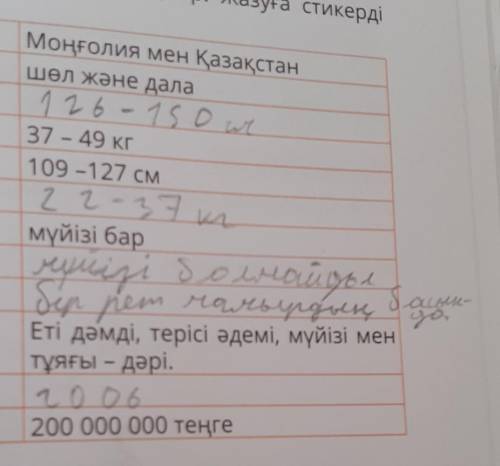 жазуға стикерді
Моңғолия мен Қазақстан
шөл және дала
126 - 150 см
37 – 49 кг
109 –127 см
22-37 кг
мүйізі бар
мүйізі болмайды
бір рет мамырдың басын-
да.
Еті дәмді, терісі әдемі, мүйізі мен
тұяғы – дәрі.
2006
200 000 000 теңге